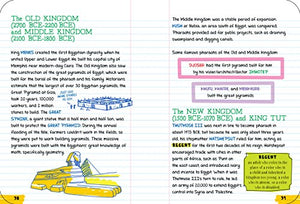 The OLD KINGDOM
(2700 BCE-2200 BCE)
and MIDDLE KINGDOM
(2100 BCE-1800 BCE)
King MENES created the first Egyptian dynasty when he
united Upper and Lower Egypt. He built his capital city of
Memphis near modern-day Cairo. The Old Kingdom also saw
the construction of the great pyramids of Egypt, which were
built for the tombs of the pharaoh and his family. Historians
estimate that the largest of over 30 Egyptian pyramids, the
Great Pyramid of Giza,
took 20 years, 100,000
workers, and 2 million
stones to build. The GREAT
SPHINX, a giant statue that is half man and half lion, was
built to protect the GREAT PYRAMID. During the annual
flooding of the Nile, farmers couldn't work in the fields, so
they were put to work building pyramids. These massive
pyramids were built with the Egyptians' great knowledge of
math, specifically geometry.
70
The Middle Kingdom was a stable period of expansion.
NUBIA, an area south of Egypt, was conquered too.
Pharaohs provided aid for public projects, such as draining
swamplands and digging canals.
Some famous pharaohs of the Old and Middle Kingdom:
DJOSER had the first pyramid built for him
by his vizier/architect/doctor, IMHOTEP.
KHUFU, KHAFRE, and MENKAURE
built the great pyramids.
The NEW KINGDOM
(1500 BCE-1070 BCE) and KING TUT
THUTMOSE III was next in line to become pharaoh in
about 1470 BCE, but because he was only about three years
old, his stepmother HATSHEPSUT ruled for him, acting as
REGENT for the first two decades of his reign. Hatshepsut
encouraged trade with cities in other
parts of Africa, such as Punt on
the east coast and introduced ivory
and myrrh to Egypt. When it was
Thutmose III's turn to rule, he led
an army of 20,000 to extend Egypt's
control into Syria and Palestine.
REGENT
71